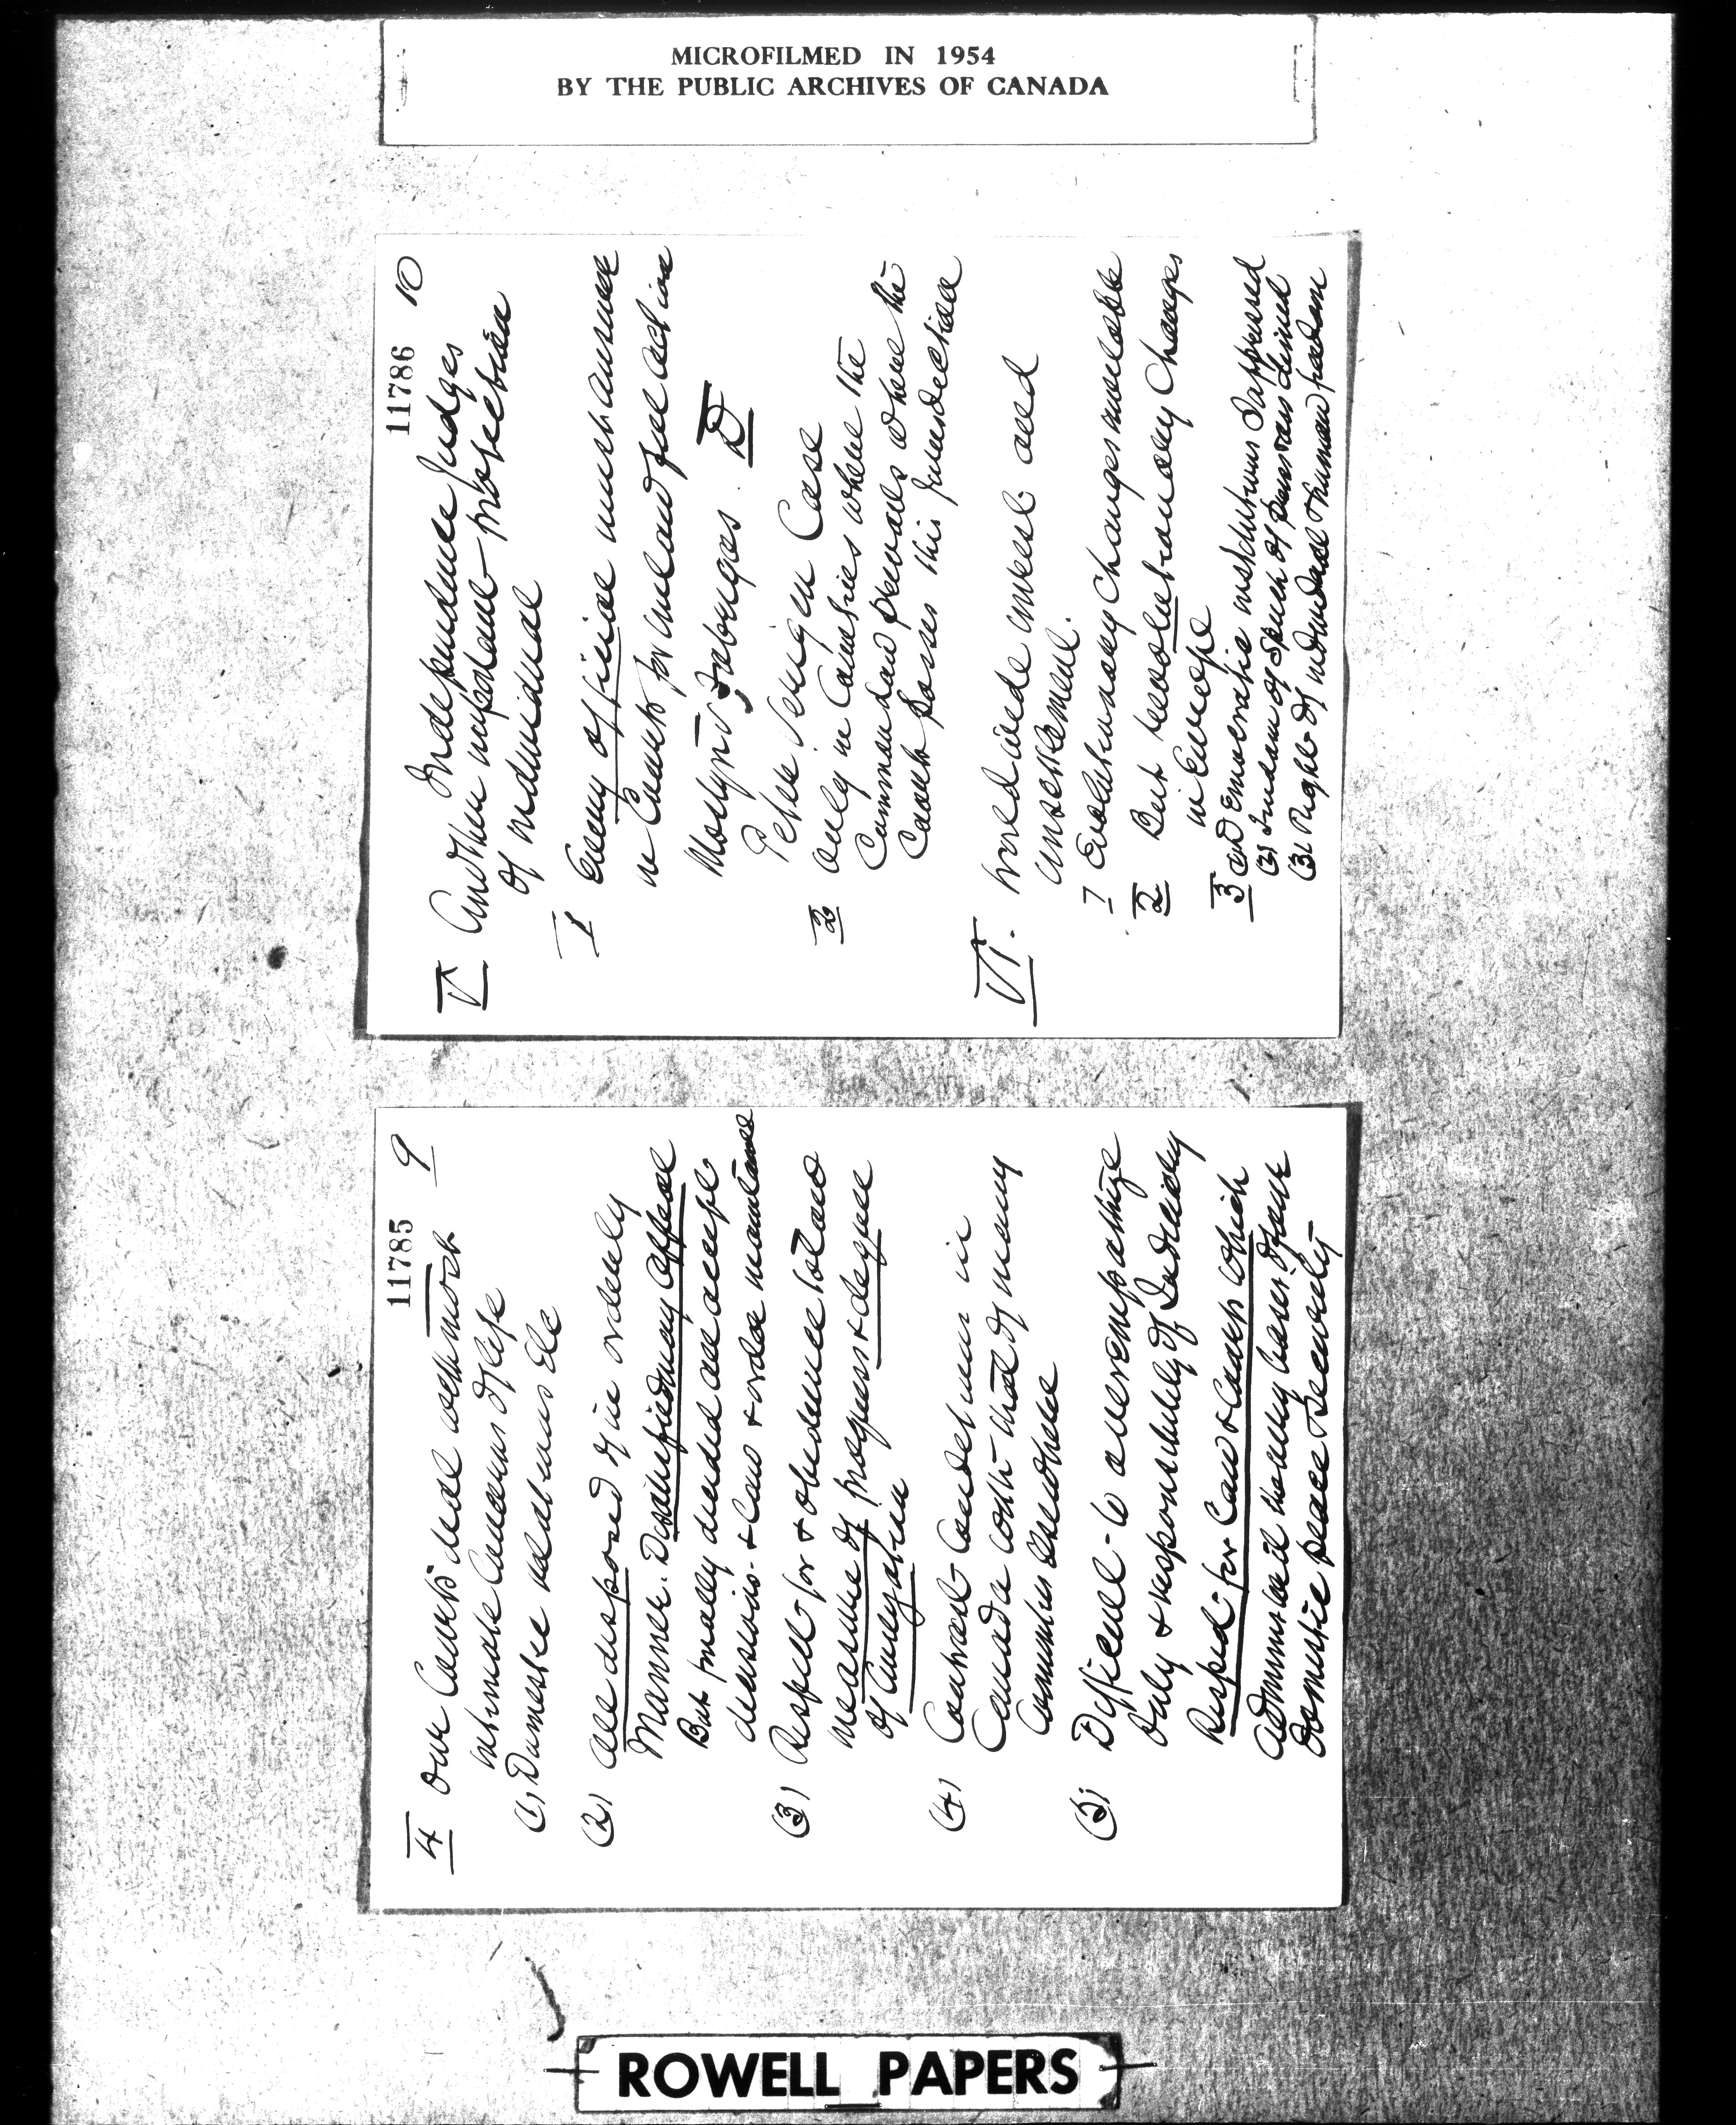 MICROFILMED IN 1954
BY THE PUBLIC ARCHIVES OF CANADA
11785 9
4 Our Courts deal with most
intimate Concerns of life
(1) Domestic relations Etc
(2) All disposed of in orderly
Manner. Disatisfied may appeal
But finally decided all accept
decisions & Law & order maintained
(3) Respect for & obedience to Law
measure of progress & degree
of Civilization
(4) Contrast Conditions in
Canada with that of many
Countries Elsewhere
(5) Difficult to overemphasize
Duty & responsibility of Judiciary
Respect for Law & Courts which
administer it the only basis for
Domestic peace & Security
11786 10
V Another important protection
of individual
Independence Judges
I Every official must answer
in Courts for unlawful action
Mostyn v Fabrigas D
Peter Serugin Case
2 Only in Countries where the
Common Law prevails & where the
Courts possess this Jurisdiction
VI. World wide unrest and
unsettlement.
1 Evolutionary Changes inevitable
2 But revolutionary Changes
in Europe
3 (1) Democratic institutions Suppressed
(2) Freedom of Speech & of press denied
(3) Right of individual & human freedom
ROWELL PAPERS